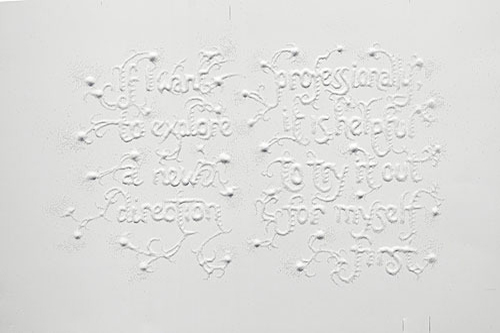 If I want
to explore
a new
direction
professionally,
it is helpful
to try it out
for myself
first.